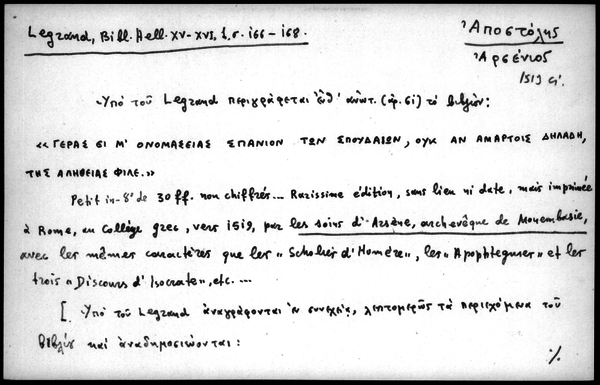 Legrand, Bibl. Hell. XV-XVI, 1, σ. 166-168.
Ἀποστόλης
Ἀρσένιος
1519 ci.
Ὑπὸ τοῦ Legrand περιγράφεται ἐνθ' ἀνωτ. (ἀρ. 61) τὸ βιβλίον:
«ΓΕΡΑΣ ΕΙ Μ' ΟΝΟΜΑΣΕΙΑΣ ΣΠΑΝΙΟΝ ΤΩΝ ΣΠΟΥΔΑΙΩΝ, ΟΥΚ ΑΝ ΑΜΑΡΤΟΙΣ ΔΗΛΑΔΗ,
ΤΗΣ ΑΛΗΘΕΙΑΣ ΦΙΛΕ.»
Petit in-8° de 30 ff. non chiffrés... Rarissime édition, sans lieu ni date, mais imprimée
à Rome, au Collège grec, vers 1519, par les soins d'Arsène, archevêque de Monembasie,
avec les mêmes caractères que les "Scholies d'Homère", les "Apophtegmes" et les
trois "Discours d'Isocrate", etc. ...
[ Ὑπὸ τοῦ Legrand ἀναγράφονται ἐν συνεχείᾳ, λεπτομερῶς τὰ περιεχόμενα τοῦ
βιβλίου καὶ ἀναδημοσιεύονται:
./.